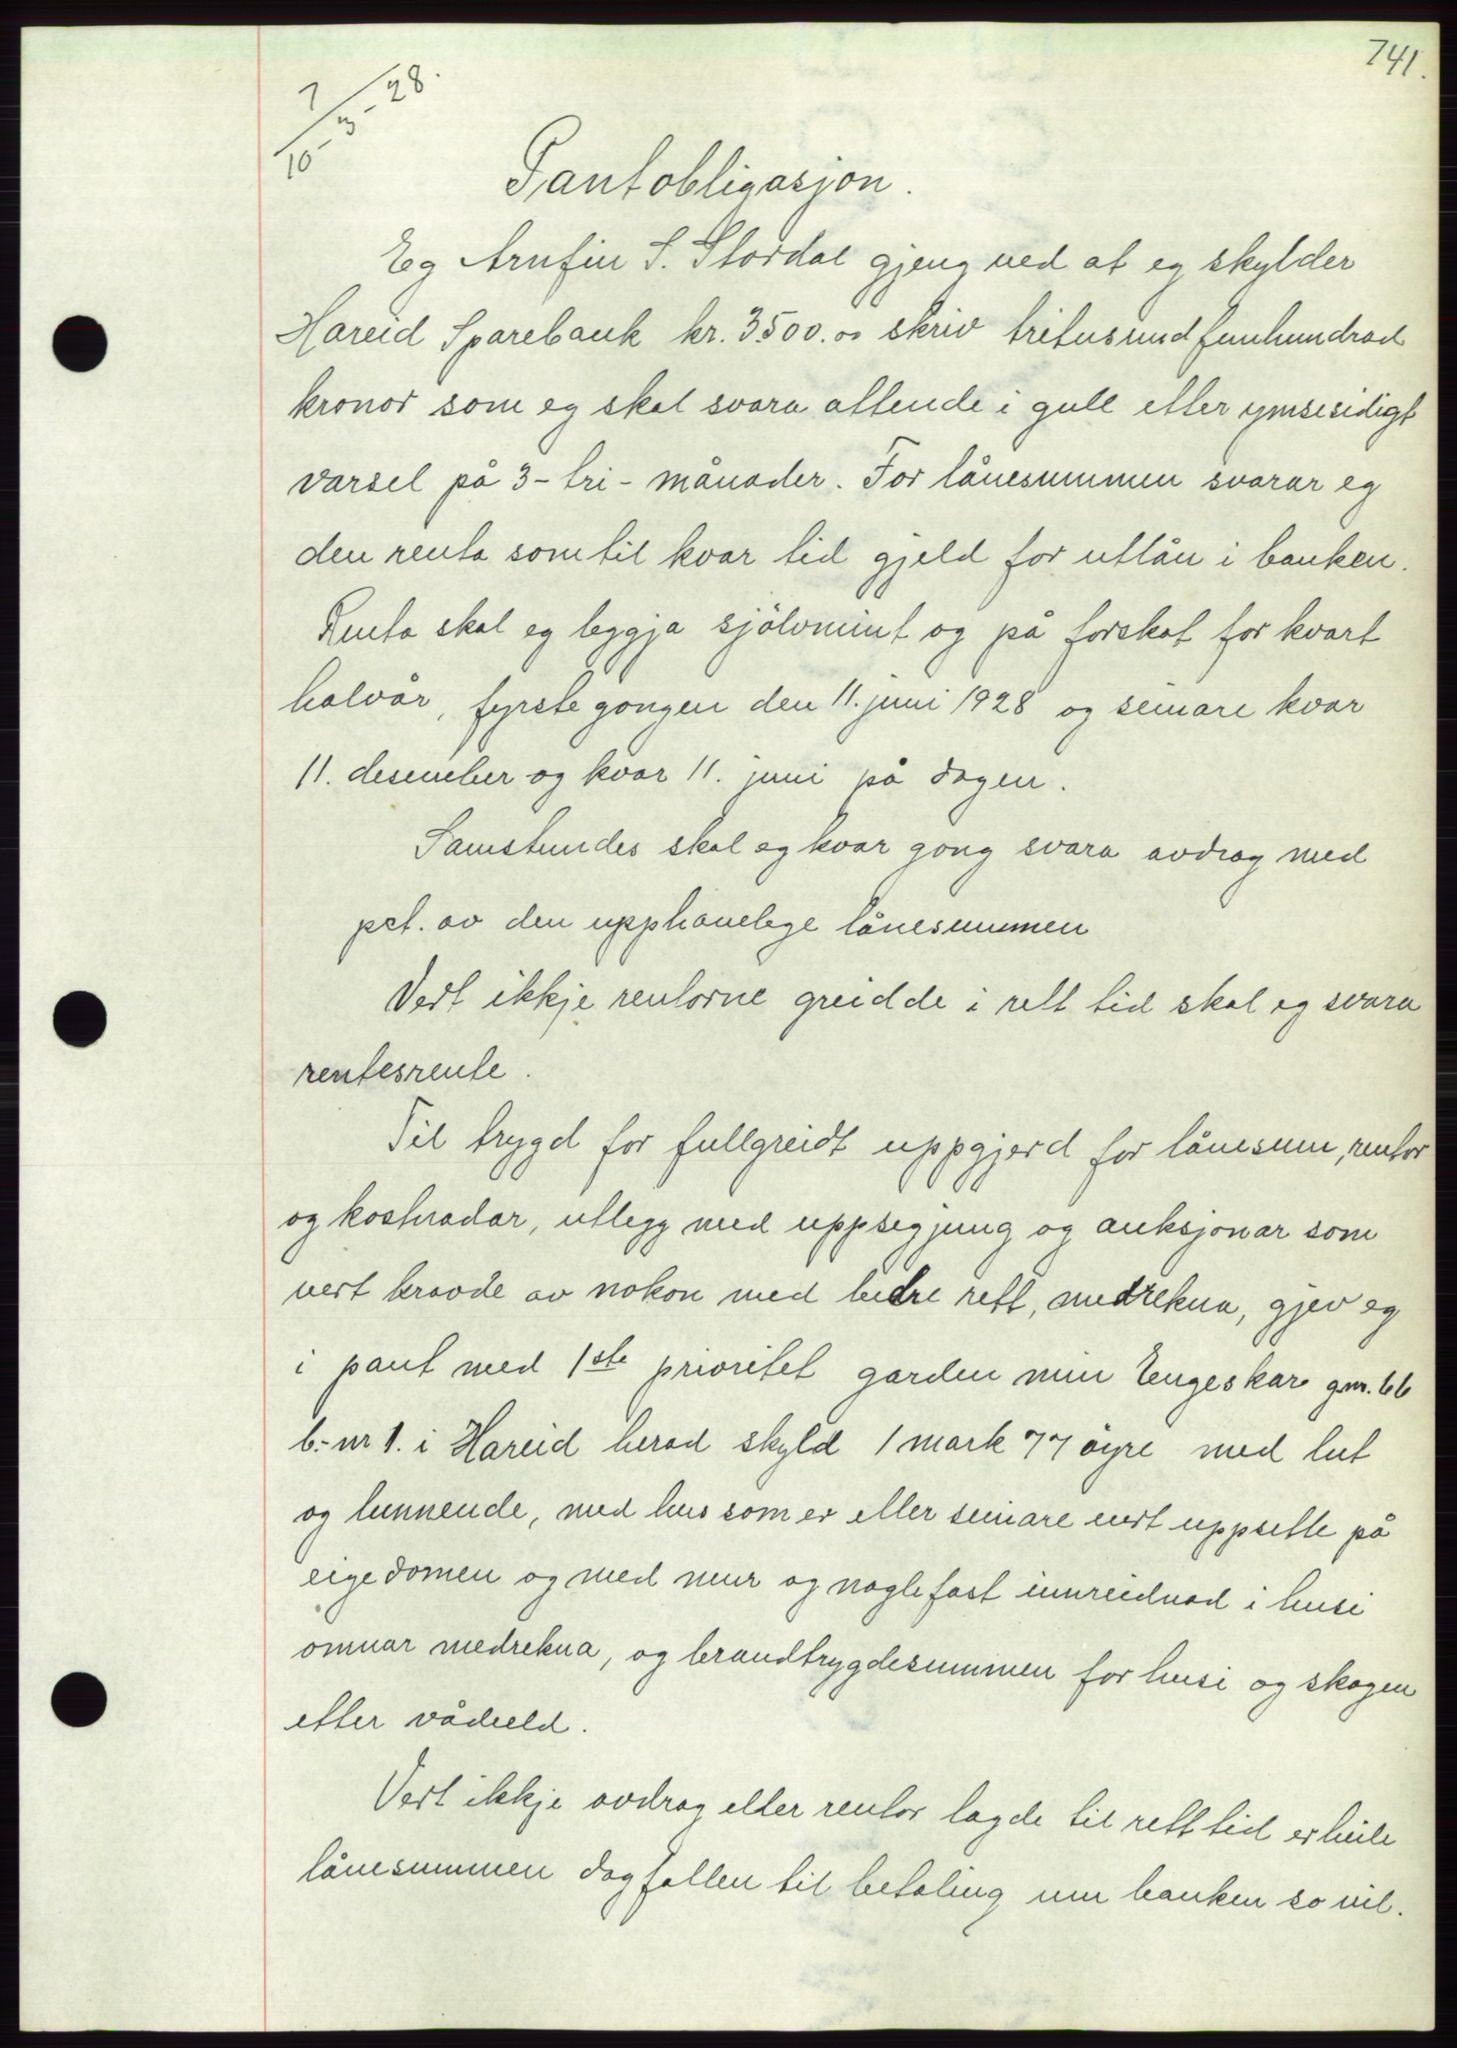 741.
7/10-3-28.
Pantobligasjon.
Eg Arnfin S. Stordal gjeng ved at eg skylder
Hareid Sparebank kr. 3500.00 skriv tritusund femhundrad
kronor som eg skal svara attende i gull etter ymsesidigt
varsel på 3-tri-månader. For lånesummen svarar eg
den renta som til kvar tid gjeld for utlån i banken.
Renta skal eg leggja sjölvmint og på forskot for kvart
halvår, fyrste gongen den 11. juni 1928 og seinare kvar
11. desember og kvar 11. juni på dagen.
Samstundes skal eg kvar gong svara avdrag med
pct. av den upphavelege lånesummen
Vert ikkje rentorne greidde i rett tid skal eg svara
rentesrente.
Til trygd for fullgreidt uppgjerd for lånesum, rentor
og kostnadar, utlegg med uppsegjing og auksjonar som
vert kravde av nokon med bedre rett, medrekna, gjev eg
i pant med 1ste prioritet garden min Engeskar g.nr. 66
b.-nr 1. i Hareid herad skyld 1 mark 77 öyre med lut
og lunnende, med hus som er eller seinare vert uppsette på
eigedomen og med mur og naglefast innreidnad i husi
omnar medrekna, og brandtrygdesummen for husi og skogen
etter vådeeld.
Vert ikkje avdrag eller rentor lagde til rett tid er heile
lånesummen dagfallen til betaling um banken so vil.